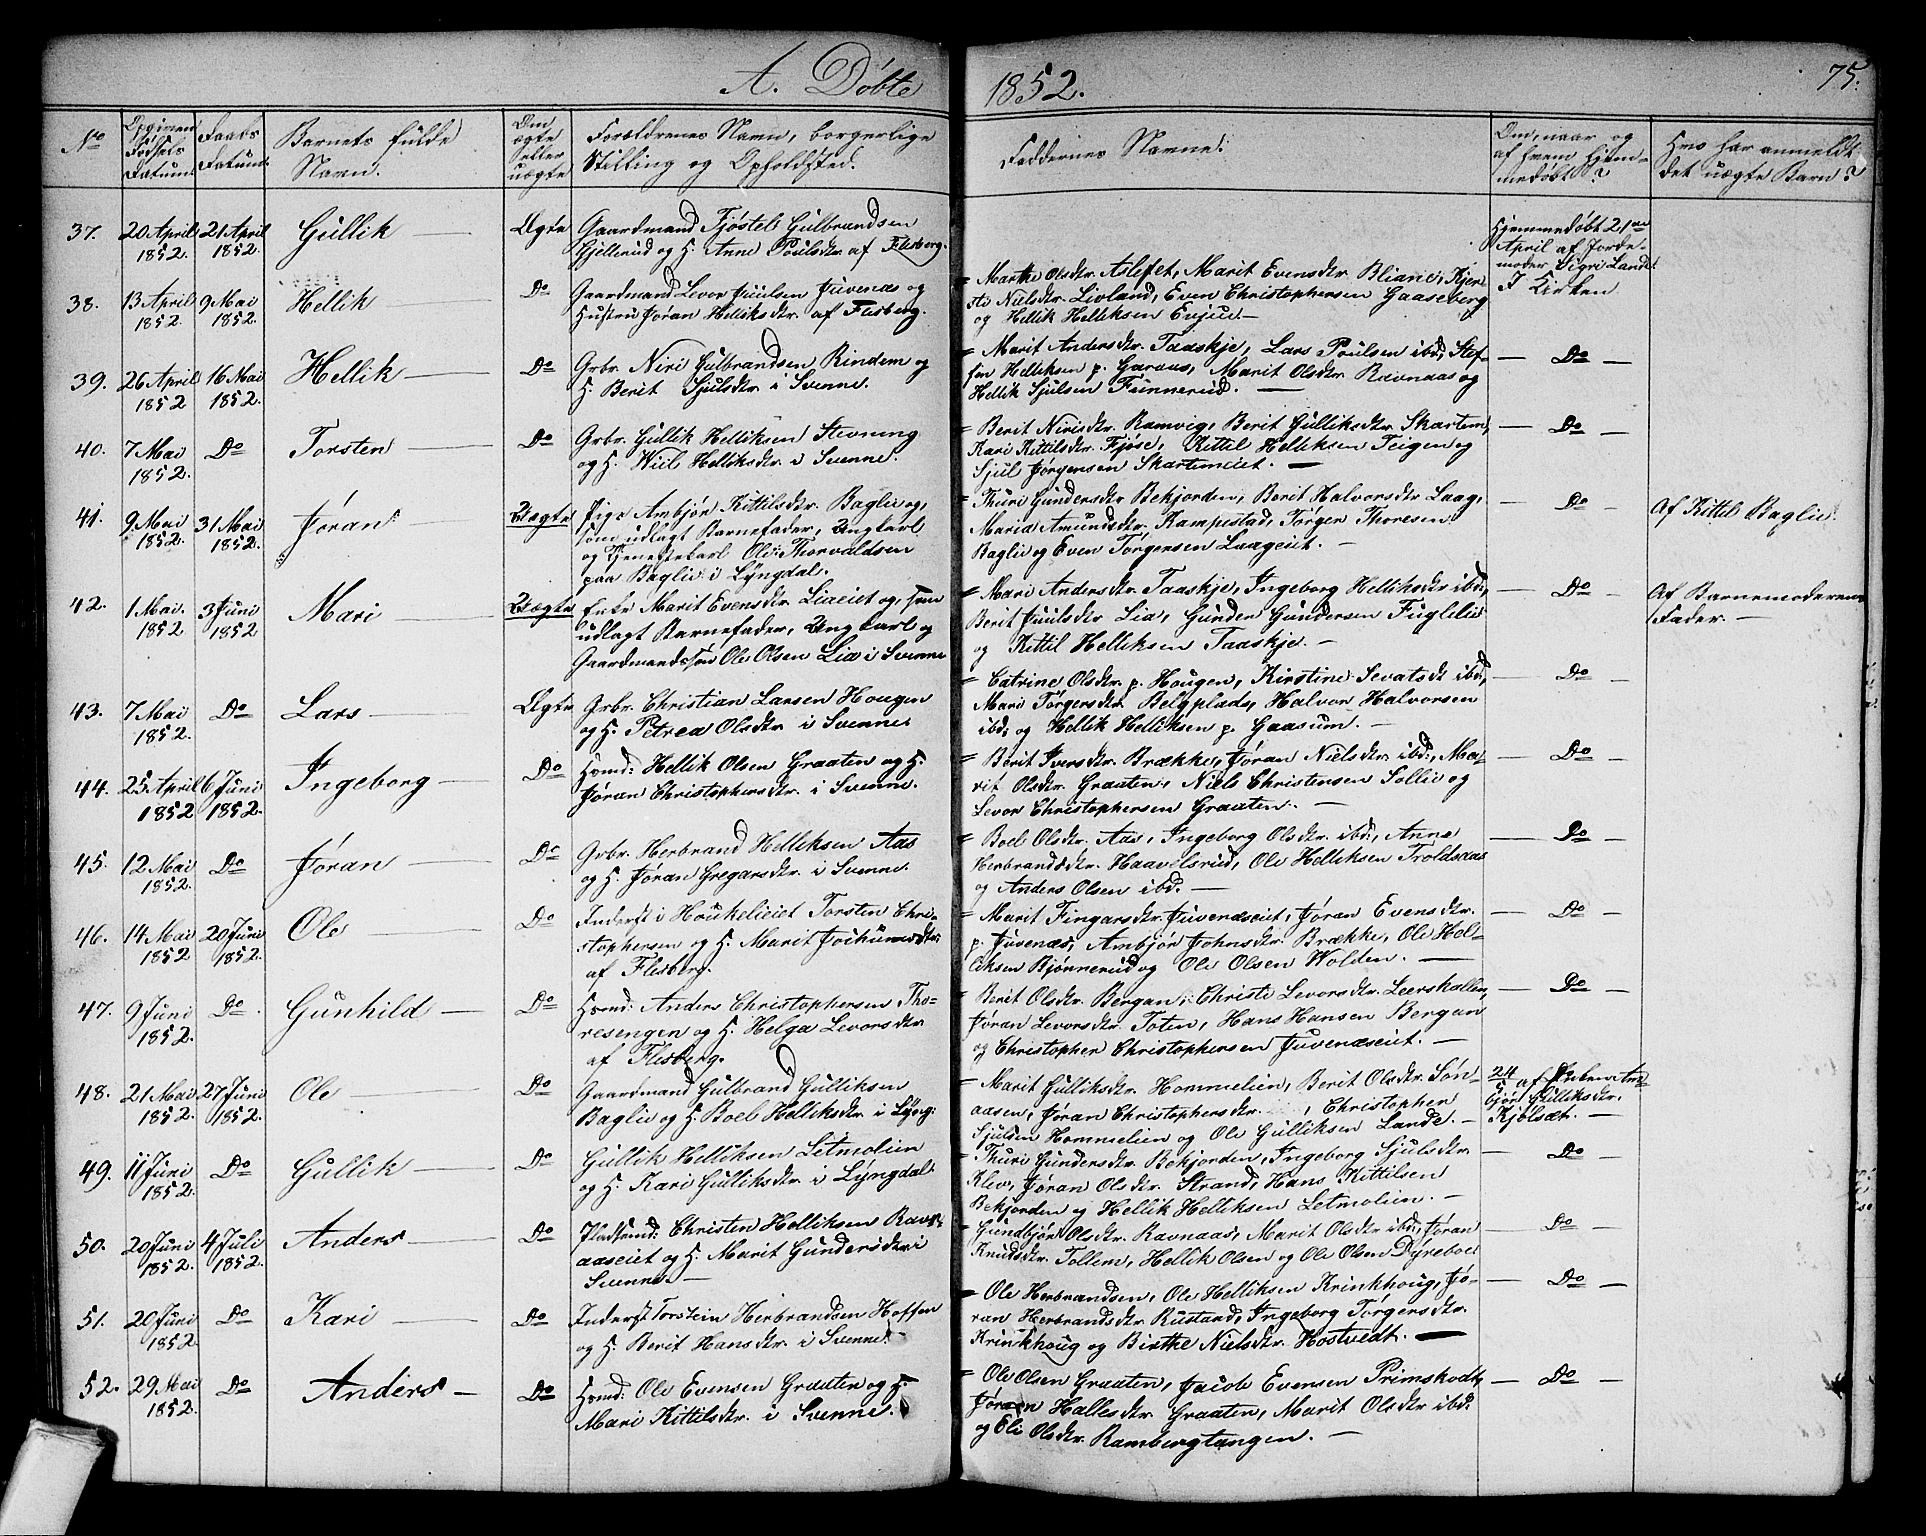 A. Döbte
1852.
75.
No
Opgiven Fødsels Datum
Daabs Datum
Barnets fulde Navn.
Om ægte eller uægte
Forældrenes Navn, borgerlige Stilling og Opholdsted.
Faddernes Navne:
Om, naar og af hvem hjemmedøbt?
Hvo har anmeldt det uægte Barn?
37. 20 April 1852. 21 April 1852. Gullik Ægte
Gaardmand Fjøstel Gulbrandsen
Gjellerud og H. Anne Poulsdtr. af Flesberg.
Hjemmedøbt 21de
April af Jorde-
moder Sigri Lande.
38. 13 April 1852. 9 Mai 1852. Hellik Do
Gaardmand Levor Juulsen Juvenæs og
Hustru Jøran Helliksdtr. af Flesberg.
= Marthe Olsdtr. Aslefet, Marit Evensdtr. Bliane, Kjer-
sti Nielsdtr. Livland, Even Christophersen Gaaseberg
og Hellik Helliksen Evjue.—
I Kirken
39. 26 April 1852 16 Mai 1852. Hellik Do
Grbr. Niri Gulbrandsen Rindem og
H. Berit Sjulsdtr. i Svenne.
= Marit Andersdtr. Taaskje, Lars Poulsen ibd; Stef-
fen Helliksen p. Garaas, Marit Olsdtr. Ravnaas og
Hellik Sjulsen Funnerud. —
— Do —
40. 7 Mai 1852. Do Torsten Do
Grbr. Gullik Helliksen Stevning
og H. Wiil Helliksdtr. i Svenne.
= Berit Nirisdtr. Ramvig, Berit Gulliksdtr. Skartum,
Kari Kittilsdtr. Fjøse, Kittil Helliksen Teigen og
Sjul Jørgensen Skartumeiet. —
— Do —
41. 9 Mai 1852. 31 Mai 1852. Jøran Uægte
Pige Ambjør Kittilsdtr. Baglie og,
som udlagt Barnefader, Ungkarl
og Tjenestekarl Ole Thorvaldsen
paa Baglie i Lyngdal.
= Thuri Gundersdtr Bekjorden, Berit Halvorsdtr Laag,
Maria Amundsdtr. Kampestad, Törgen Thoresen
Baglie og Even Törgersen Laageiet. —
— Do
Af Kittil Baglie.
42. 1 Mai. 1852 3 Juni 1852 Mari Uægte
Enke Marit Evensdtr. Liaeiet og, som
udlagt Barnefader, Ungkarl og
Gaardmandssøn Ole Olsen Lia i Svenne
= Mari Andersdtr. Taaskje, Ingeborg Helliksdtr ibd;
Berit Juulsdtr Lia, Gunder Gundersen Fuglelie
og Kittil Helliksen Taaskje. —
— Do —
Af Barnemoderens
Fader. —
43. 7 Mai 1852. Do Lars Ægte
Grbr. Christian Larsen Hougen
og H. Petrea Olsdtr i Svenne
= Catrine Olsdtr. p. Hougen, Kirstine Sevatsdt ibd,
Mari Törgersdtr. Belgplads, Halvor Halvorsen
ibd; og Hellik Helliksen p. Gaasum. —
— Do —
44. 25 April 1852 6 Juni 1852. Ingeborg Do
Hsmd: Hellik Olsen Graaten og H.
Jøran Christophersdtr. i Svenne.
= Berit Iversdtr. Brække, Jøran Nielsdtr. ibd:, Ma-
rit Olsdtr. Graaten, Niels Christensen Sollie og
Levor Christophersen Graaten. —
— Do —
45. 12 Mai 1852. Do Jøran Do
Grbr. Herbrand Helliksen Aas
og H. Jøran Gregarsdtr. i Svenne.
= Boel Olsdtr. Aas, Ingeborg Olsdtr. ibd:, Anne
Herbrandsdtr. Haavelsrud, Ole Helliksen Troldsaas
og Anders Olsen ibd. —
— Do —
46. 14 Mai 1852 20 Juni 1852. Ole Do
Inderst i Houkelieiet Torsten Chri-
stophersen og H. Marit Jochumsdtr.
af Flesberg.
= Marit Fingarsdtr. Juvenæseiet, Jøran Evensdtr.
p. Juvenæs, Ambjør Johnsdtr. Brække, Ole Hel-
liksen Bjønnerud og Ole Olsen Wolden. —
— Do —
47. 9 Juni 1852. Do. Gunhild Do
Hsmd: Anders Christophersen Tho-
resengen og H. Helga Levorsdtr.
af Flesberg.
= Berit Olsdtr. Bergan; Christi Levorsdtr. Leershallen,
Jøran Levorsdtr. Toten, Hans Hansen Bergan
og Christopher Christophersen Juvenæseiet. —
— Do —
48. 21 Mai 1852. 27 Juni 1852. Ole Do
Gaardmand Gulbrand Gulliksen
Baglie og H. Boel Helliksdtr. i Lyng:
= Marit Gulliksdtr. Hommelien, Berit Olsdtr. Søn-
aasen, Jøran Christophersdtr. , Christopher
Sjulsen Hommelien og Ole Gulliksen Lande. —
24/5 af Enken Am-
bjør Gulliksdtr.
Kjølsæt. —
49. 11 Juni 1852. Do Gullik Do
Gullik Helliksen Letmolien
og H. Kari Gulliksdtr. i Lyngdal.
= Thuri Gundersdtr. Bekjorden, Ingeborg Sjulsdtr.
Klev, Jøran Olsdtr. Strand, Hans Kittilsen
Bekjorden og Hellik Helliksen Letmolien. —
— Do —
50. 20 Juni 1852. 4 Juli 1852. Anders Do
Pladsmd: Christen Helliksen Ravn-
aaseiet og H. Marit Gundersdtr. i
Svenne. —
= Gundbjør Olsdtr. Ravnaas, Marit Olsdtr ibd; Jøran
Knudsdtr. Tollem, Hellik Olsen og Ole Olsen Dyreboe
— Do —
51. 20 Juni 1852. Do Kari Do
Inderst Torstein Herbrandsen Hoffen
og H. Berit Hansdtr. i Svenne.
= Ole Herbrandsen, Ole Helliksen Krinkhoug, Jø-
ran Herbrandsdtr. Rustand, Ingeborg Törgersdtr.
Krinkhoug og Birthe Nielsdtr. Hostvedt. —
— Do —
52. 29 Mai 1852. Do Anders Do
Hsmd: Ole Evensen Graaten og H.
Mari Kittilsdtr. i Svenne.
= Ole Olsen Graaten, Jacob Evensen Primskodt,
Jøraan Hallesdtr. Graaten, Marit Olsdtr ibd.
og Eli Olsdtr. Rambergtangen. —
— Do —